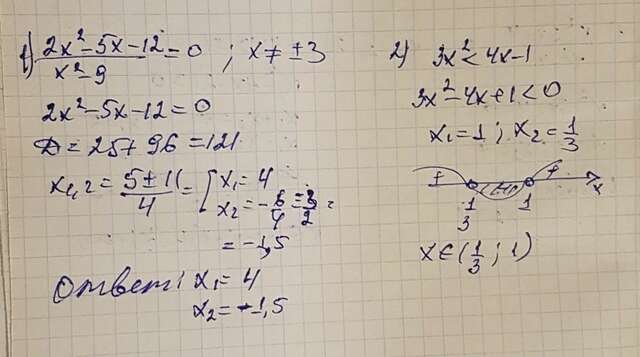 1) (2x²-5x-12)/(x²-9) = 0 ; x ≠ ±3
2x²-5x-12=0
D=25+96=121
x₁,₂ = (5±11)/4 = [ x₁=4
x₂=-6/4=3/2=
=-1,5
Ответ: x₁=4
x₂=-1,5
2) 3x²<4x-1
3x²-4x+1<0
x₁=1 ; x₂=1/3
+ - + x
1/3 1
x∈(1/3 ; 1)